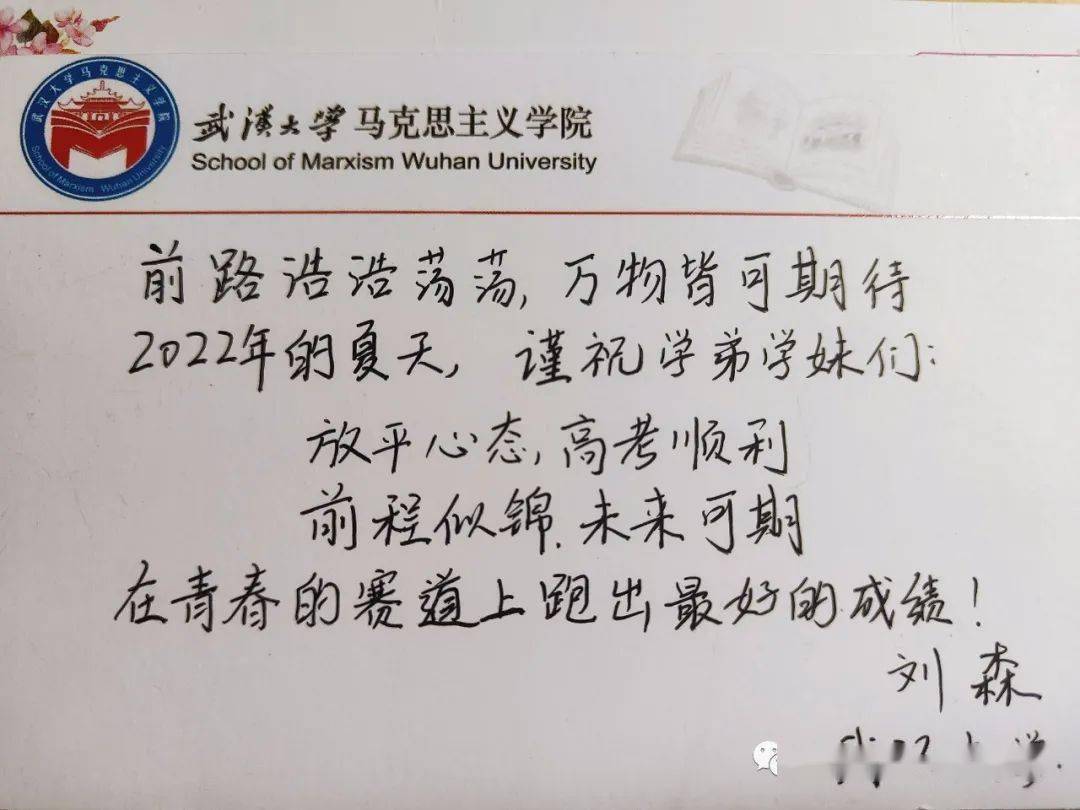 武汉大学马克思主义学院
School of Marxism Wuhan University
武汉大学马克思主义学院
School of Marxism Wuhan University
前路浩浩荡荡,万物皆可期待
2022年的夏天, 谨祝学弟学妹们:
放平心态,高考顺利
前程似锦.未来可期
在青春的赛道上跑出最好的成绩!
刘森